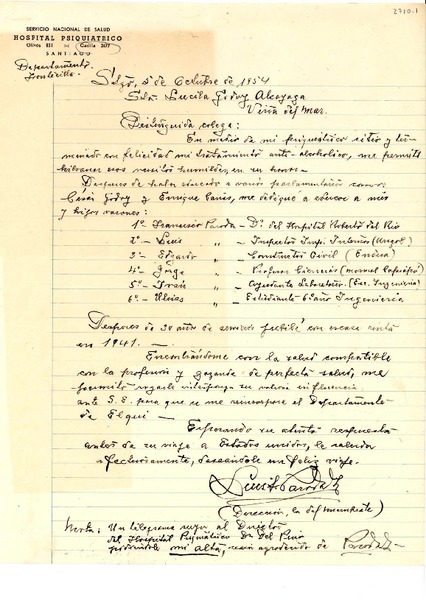 2710-1
SERVICIO NACIONAL DE SALUD
HOSPITAL PSIQUIATRICO
Olivos 831 Casilla 3177
SANTIAGO
Departamento
Stgo, 5 de Octubre de 1954
Sra. Lucila Godoy Alcayaga
Viña del Mar.
Distinguida colega:
En medio de mi y ter-
minado con felicidad mi tratamiento anti-alcohólico, me permito
humildes, en su honor.
Despues de haber a varios parlamentarios como
César Godoy y Enrique me obligué a educar a mis
y hijos varones:
1º Francisco Parodi - Dr. del Hospital Roberto del Rio
2º Luis " - Inspector Impt. Internos
3º Edgardo " - Constructor Civil (Endesa)
4º Jorge " - Profesor Ciencias (manual Copiapó)
5º " - Ayudante Laboratorio (Esc. Ingeniería)
6º Ulises " - Estudiante 6º año Ingeniería
Despues de 30 años de servicio jubilé con escasa renta
en 1941. -
Encontrándome con la salud compatible
con la profesión y gozando de perfecta salud, me
permito rogarle su valiosa influencia
ante S. E. para que se me reincorpore al Departamento
de Elqui -
Esperando su atenta respuesta
antes de su viaje a Estados Unidos, le saluda
afectuosamente, deseándole un feliz viaje.
Luis Parodi
(Dirección, la del membrete)
Nota: Un telegrama suyo al Director
del Hospital Psiquiátrico Dr. Del Pino
pidiéndole mi alta, seria agradecido de Parodi